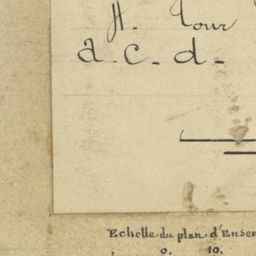 H. Tour
a. c. d.
Echelle du plan d'Ensem
0. 10.